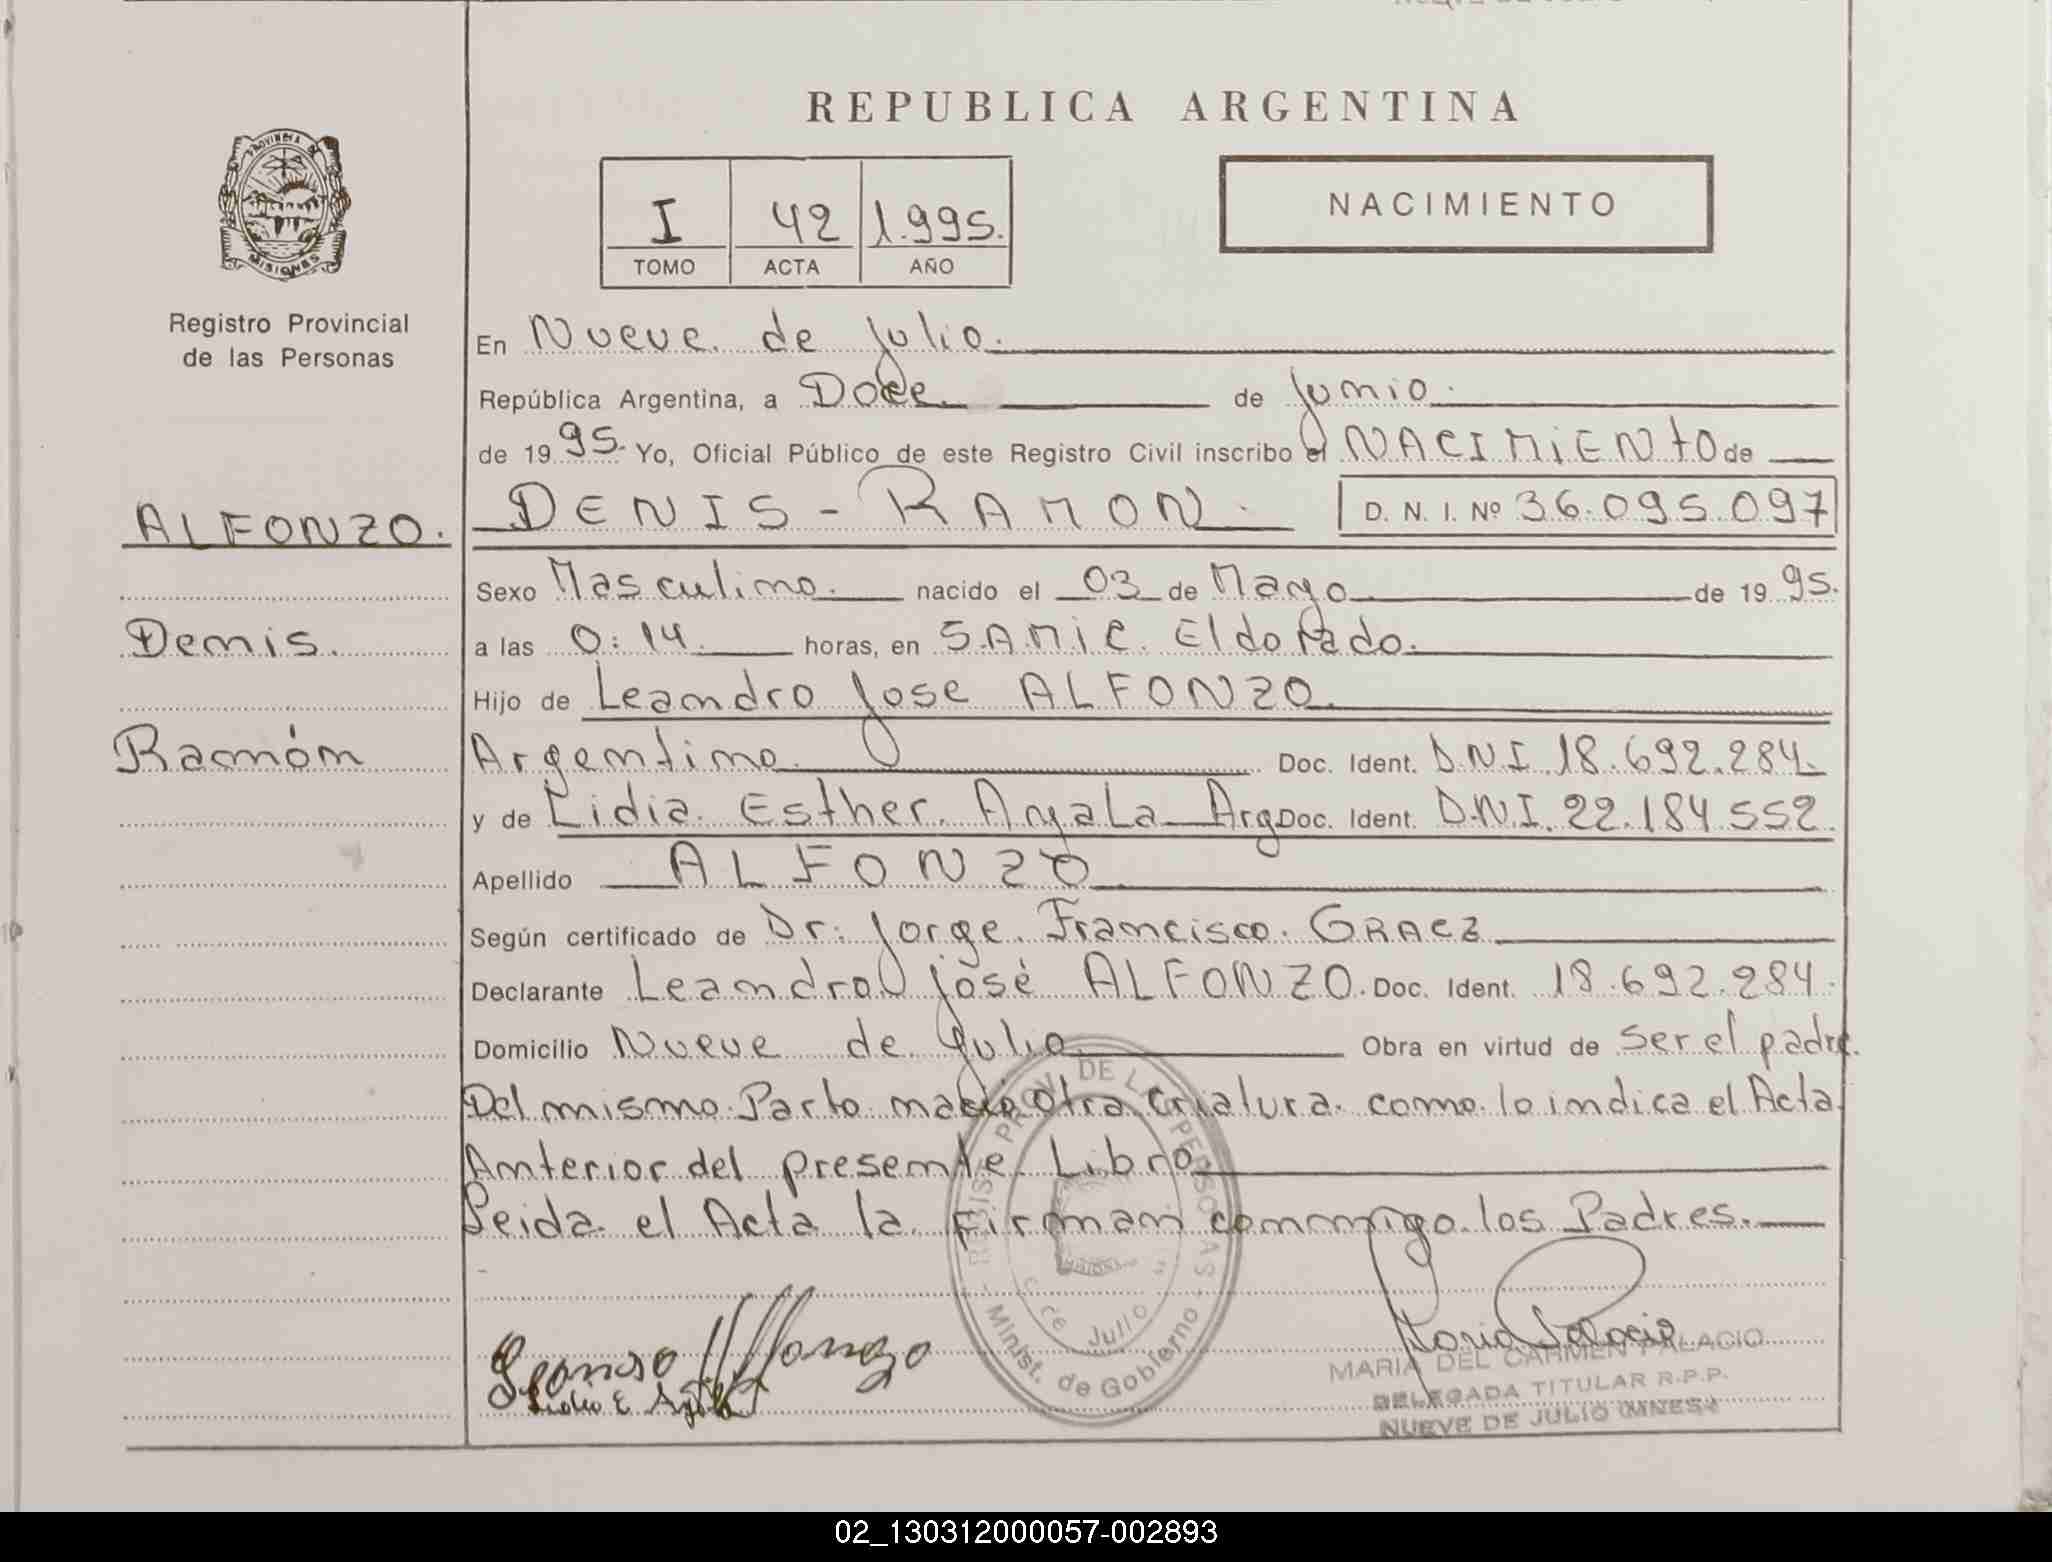 REPUBLICA ARGENTINA
PROVINCIA DE
MISIONES
Registro Provincial
de las Personas
I 42 1.995.
TOMO ACTA AÑO
NACIMIENTO
En Nueve de Julio.
República Argentina, a Doce de Junio.
de 19 95. Yo, Oficial Público de este Registro Civil inscribo el NACIMIENTO de
ALFONZO.
DENIS - RAMON. D. N. I. Nº 36.095.097
Sexo Masculino. nacido el 03 de Mayo de 19 95.
Denis.
a las 0:14. horas, en S.A.M.I.C. Eldorado.
Hijo de Leandro Jose ALFONZO.
Ramón
Argentino. Doc. Ident. D.N.I. 18.692.284.
y de Lidia Esther Ayala Arg Doc. Ident. D.N.I. 22.184.552.
Apellido ALFONZO
Según certificado de Dr. Jorge Francisco GRAEZ
Declarante Leandro José ALFONZO. Doc. Ident. 18.692.284.
Domicilio Nueve de Julio Obra en virtud de ser el padre.
Del mismo Parto nacio otra criatura como lo indica el Acta
Anterior del presente Libro.
Leida el Acta la firman conmigo los Padres.
REGIS. PROV. DE LAS PERSONAS
de Julio
Minist. de Gobierno
Lidia E Ayala
MARIA DEL CARMEN PALACIO
DELEGADA TITULAR R.P.P.
NUEVE DE JULIO (MNES)
02_130312000057-002893